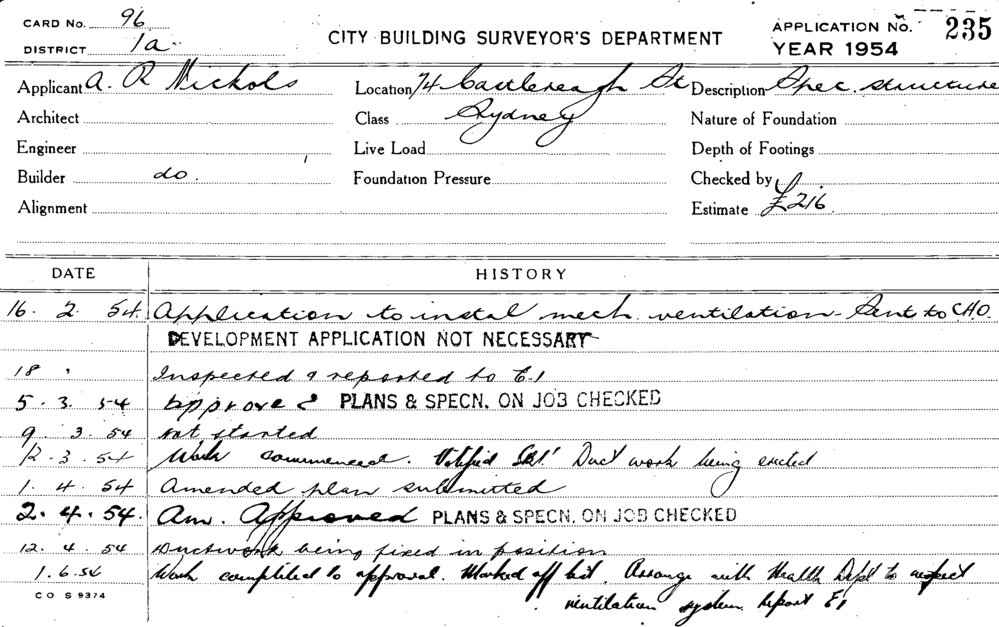 CARD No. 96
DISTRICT 1a
CITY BUILDING SURVEYOR'S DEPARTMENT
APPLICATION No. 235
YEAR 1954
Applicant A. R Nickols Location 74 Castlereagh St Description Spec. structure
Architect Class Sydney Nature of Foundation
Engineer Live Load Depth of Footings
Builder do. Foundation Pressure Checked by
Alignment Estimate £216
DATE HISTORY
16. 2. 54. Application to instal mech. ventilation - Sent to C.H.O.
DEVELOPMENT APPLICATION NOT NECESSARY
18 " Inspected & reported to E.1
5. 3. 54 approved PLANS & SPECN. ON JOB CHECKED
9. 3. 54 Not started
12. 3. 54 Work commenced. Notified Duct work being erected
1. 4. 54 Amended plan submitted
2. 4. 54. Am. Approved PLANS & SPECN. ON JOB CHECKED
12. 4. 54 Ductwork being fixed in position
1. 6. 54 Work completed to approval. Marked off list. Arrange with Health Dept to inspect
ventilation system report E1
CO S 9374